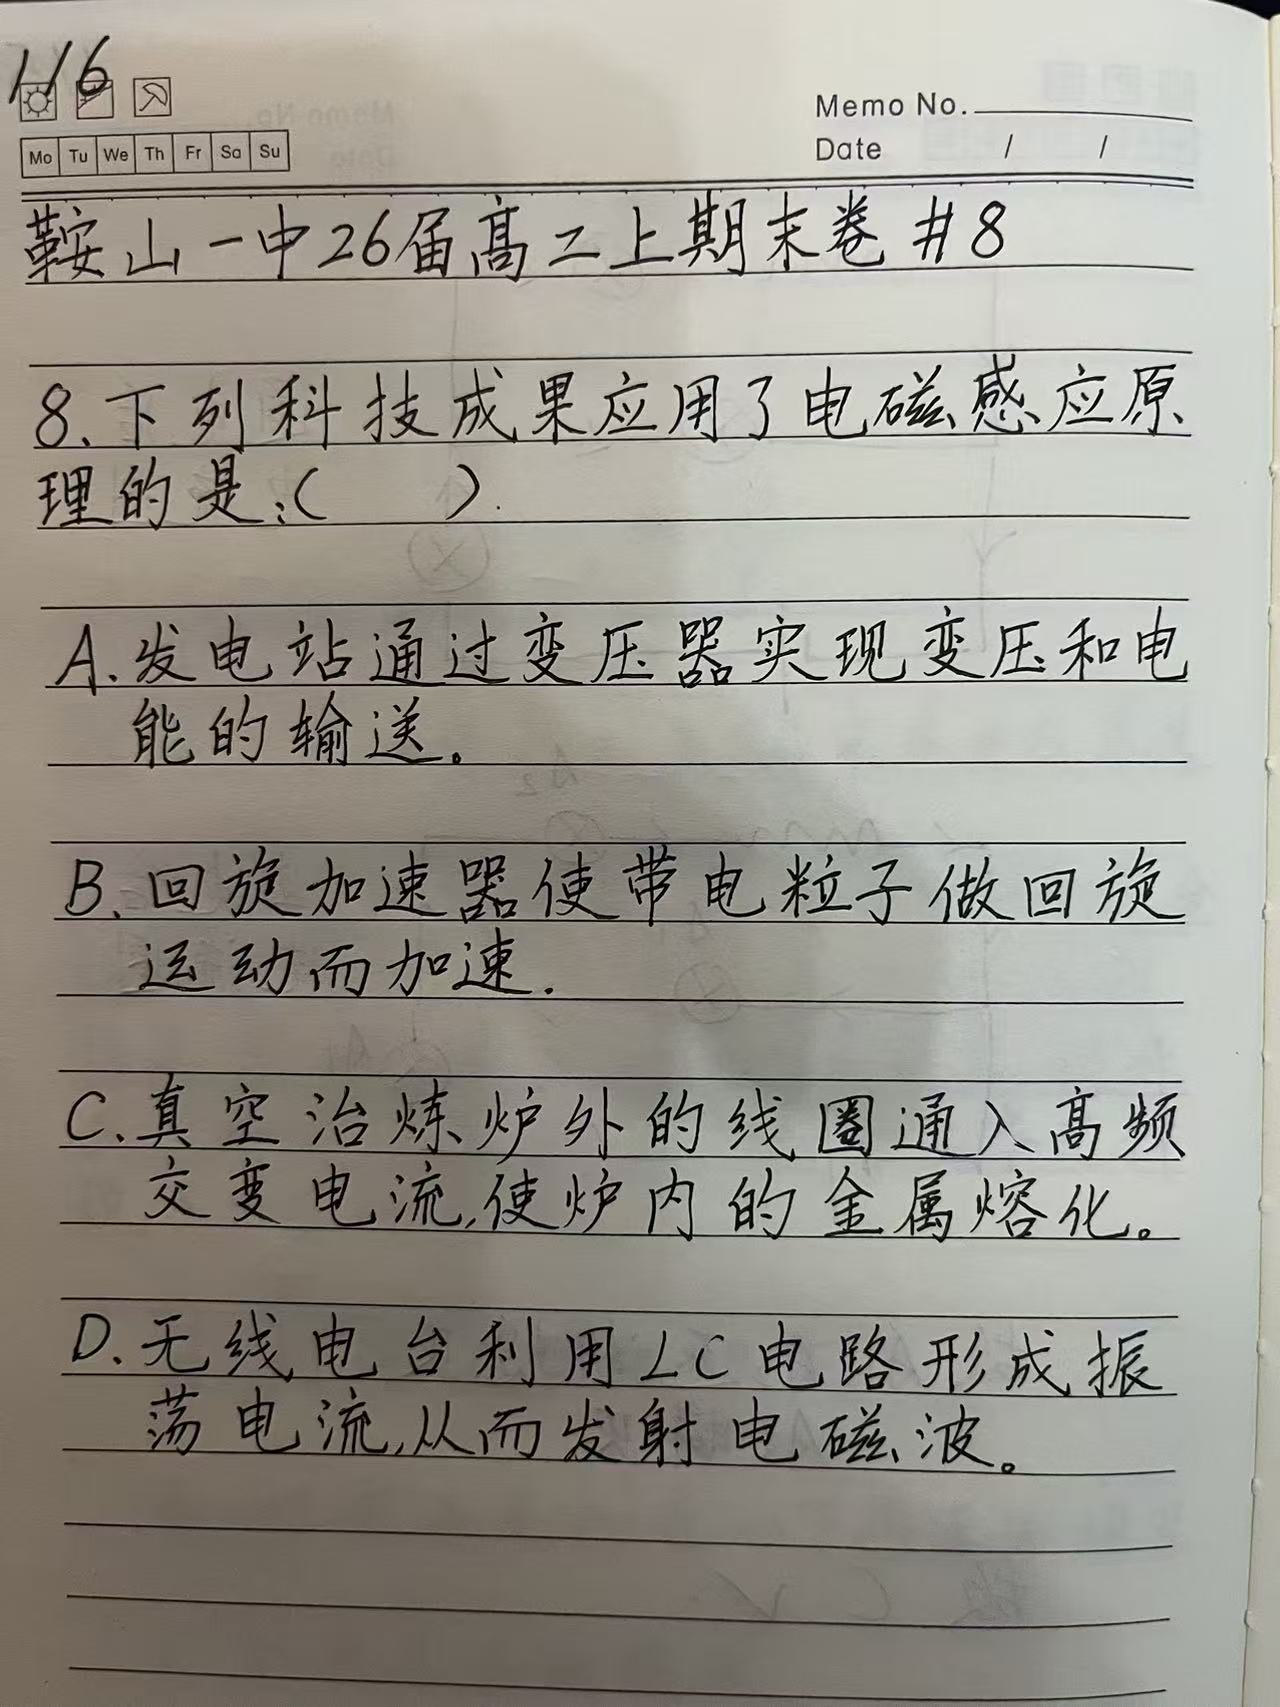 1/6
Memo No.
Mo Tu We Th Fr Sa Su
Date / /
鞍山一中26届高二上期末卷#8
8.下列科技成果应用了电磁感应原
理的是:( ).
A.发电站通过变压器实现变压和电
能的输送。
B.回旋加速器使带电粒子做回旋
运动而加速.
C.真空冶炼炉外的线圈通入高频
交变电流,使炉内的金属熔化。
D.无线电台利用LC电路形成振
荡电流,从而发射电磁波。